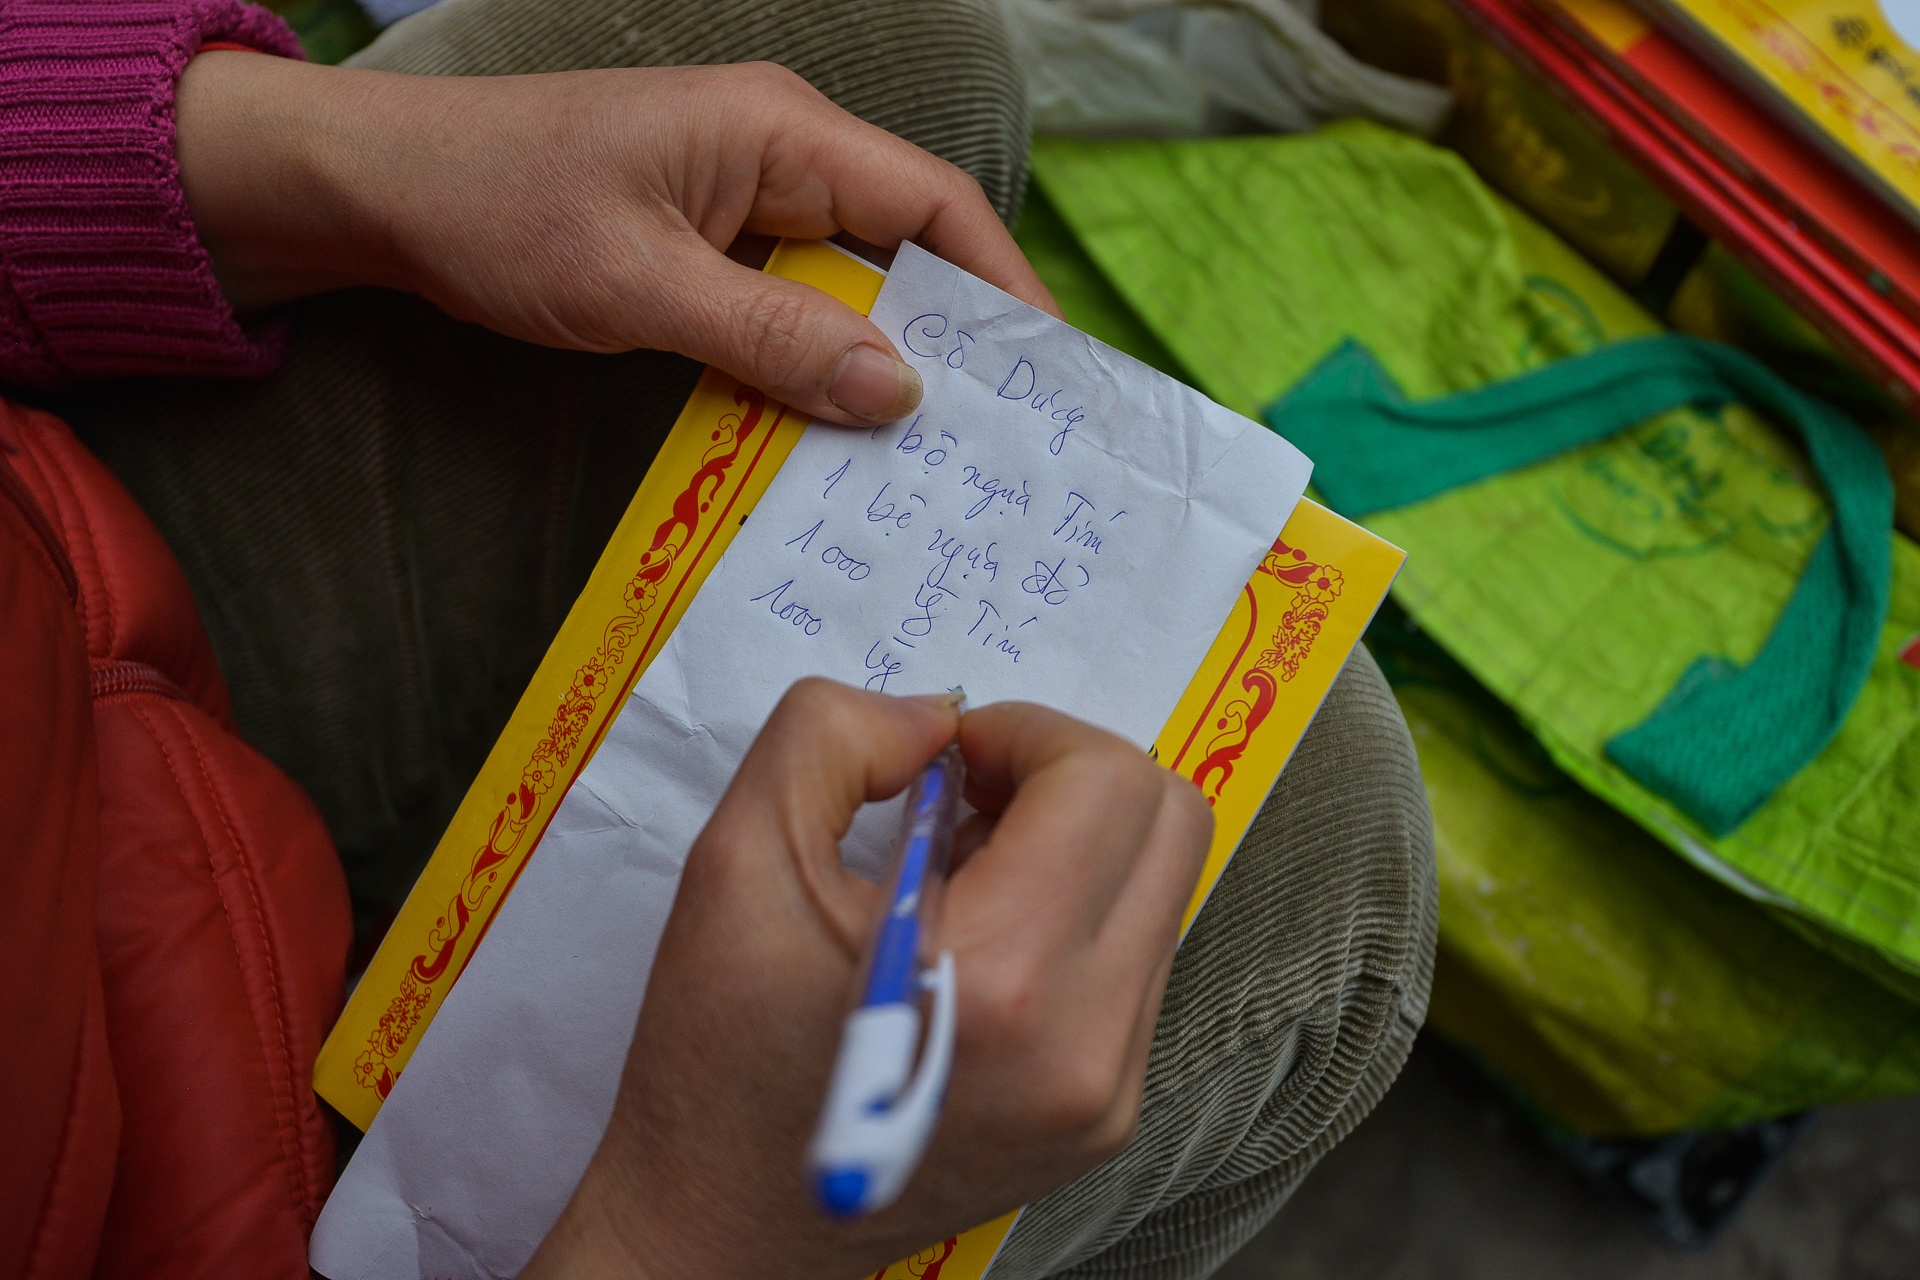 Cô Dương
1 bộ ngựa Tím
1 bộ ngựa đỏ
1000 Tím
1000